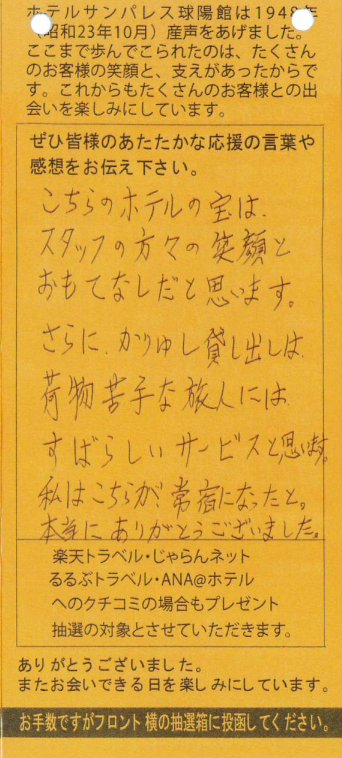 ホテルサンパレス球陽館は1948年
（昭和23年10月）産声をあげました。
ここまで歩んでこられたのは、たくさん
のお客様の笑顔と、支えがあったからで
す。これからもたくさんのお客様との出
会いを楽しみにしています。
ぜひ皆様のあたたかな応援の言葉や
感想をお伝え下さい。
こちらのホテルの宝は、
スタッフの方々の笑顔と
おもてなしだと思います。
さらに、かりゆし貸し出しは、
荷物苦手な旅人には、
すばらしいサービスと思います。
私はこちらが、常宿になったと。
本当にありがとうございました。
楽天トラベル・じゃらんネット
るるぶトラベル・ANA@ホテル
へのクチコミの場合もプレゼント
抽選の対象とさせていただきます。
ありがとうございました。
またお会いできる日を楽しみにしています。
お手数ですがフロント横の抽選箱に投函してください。